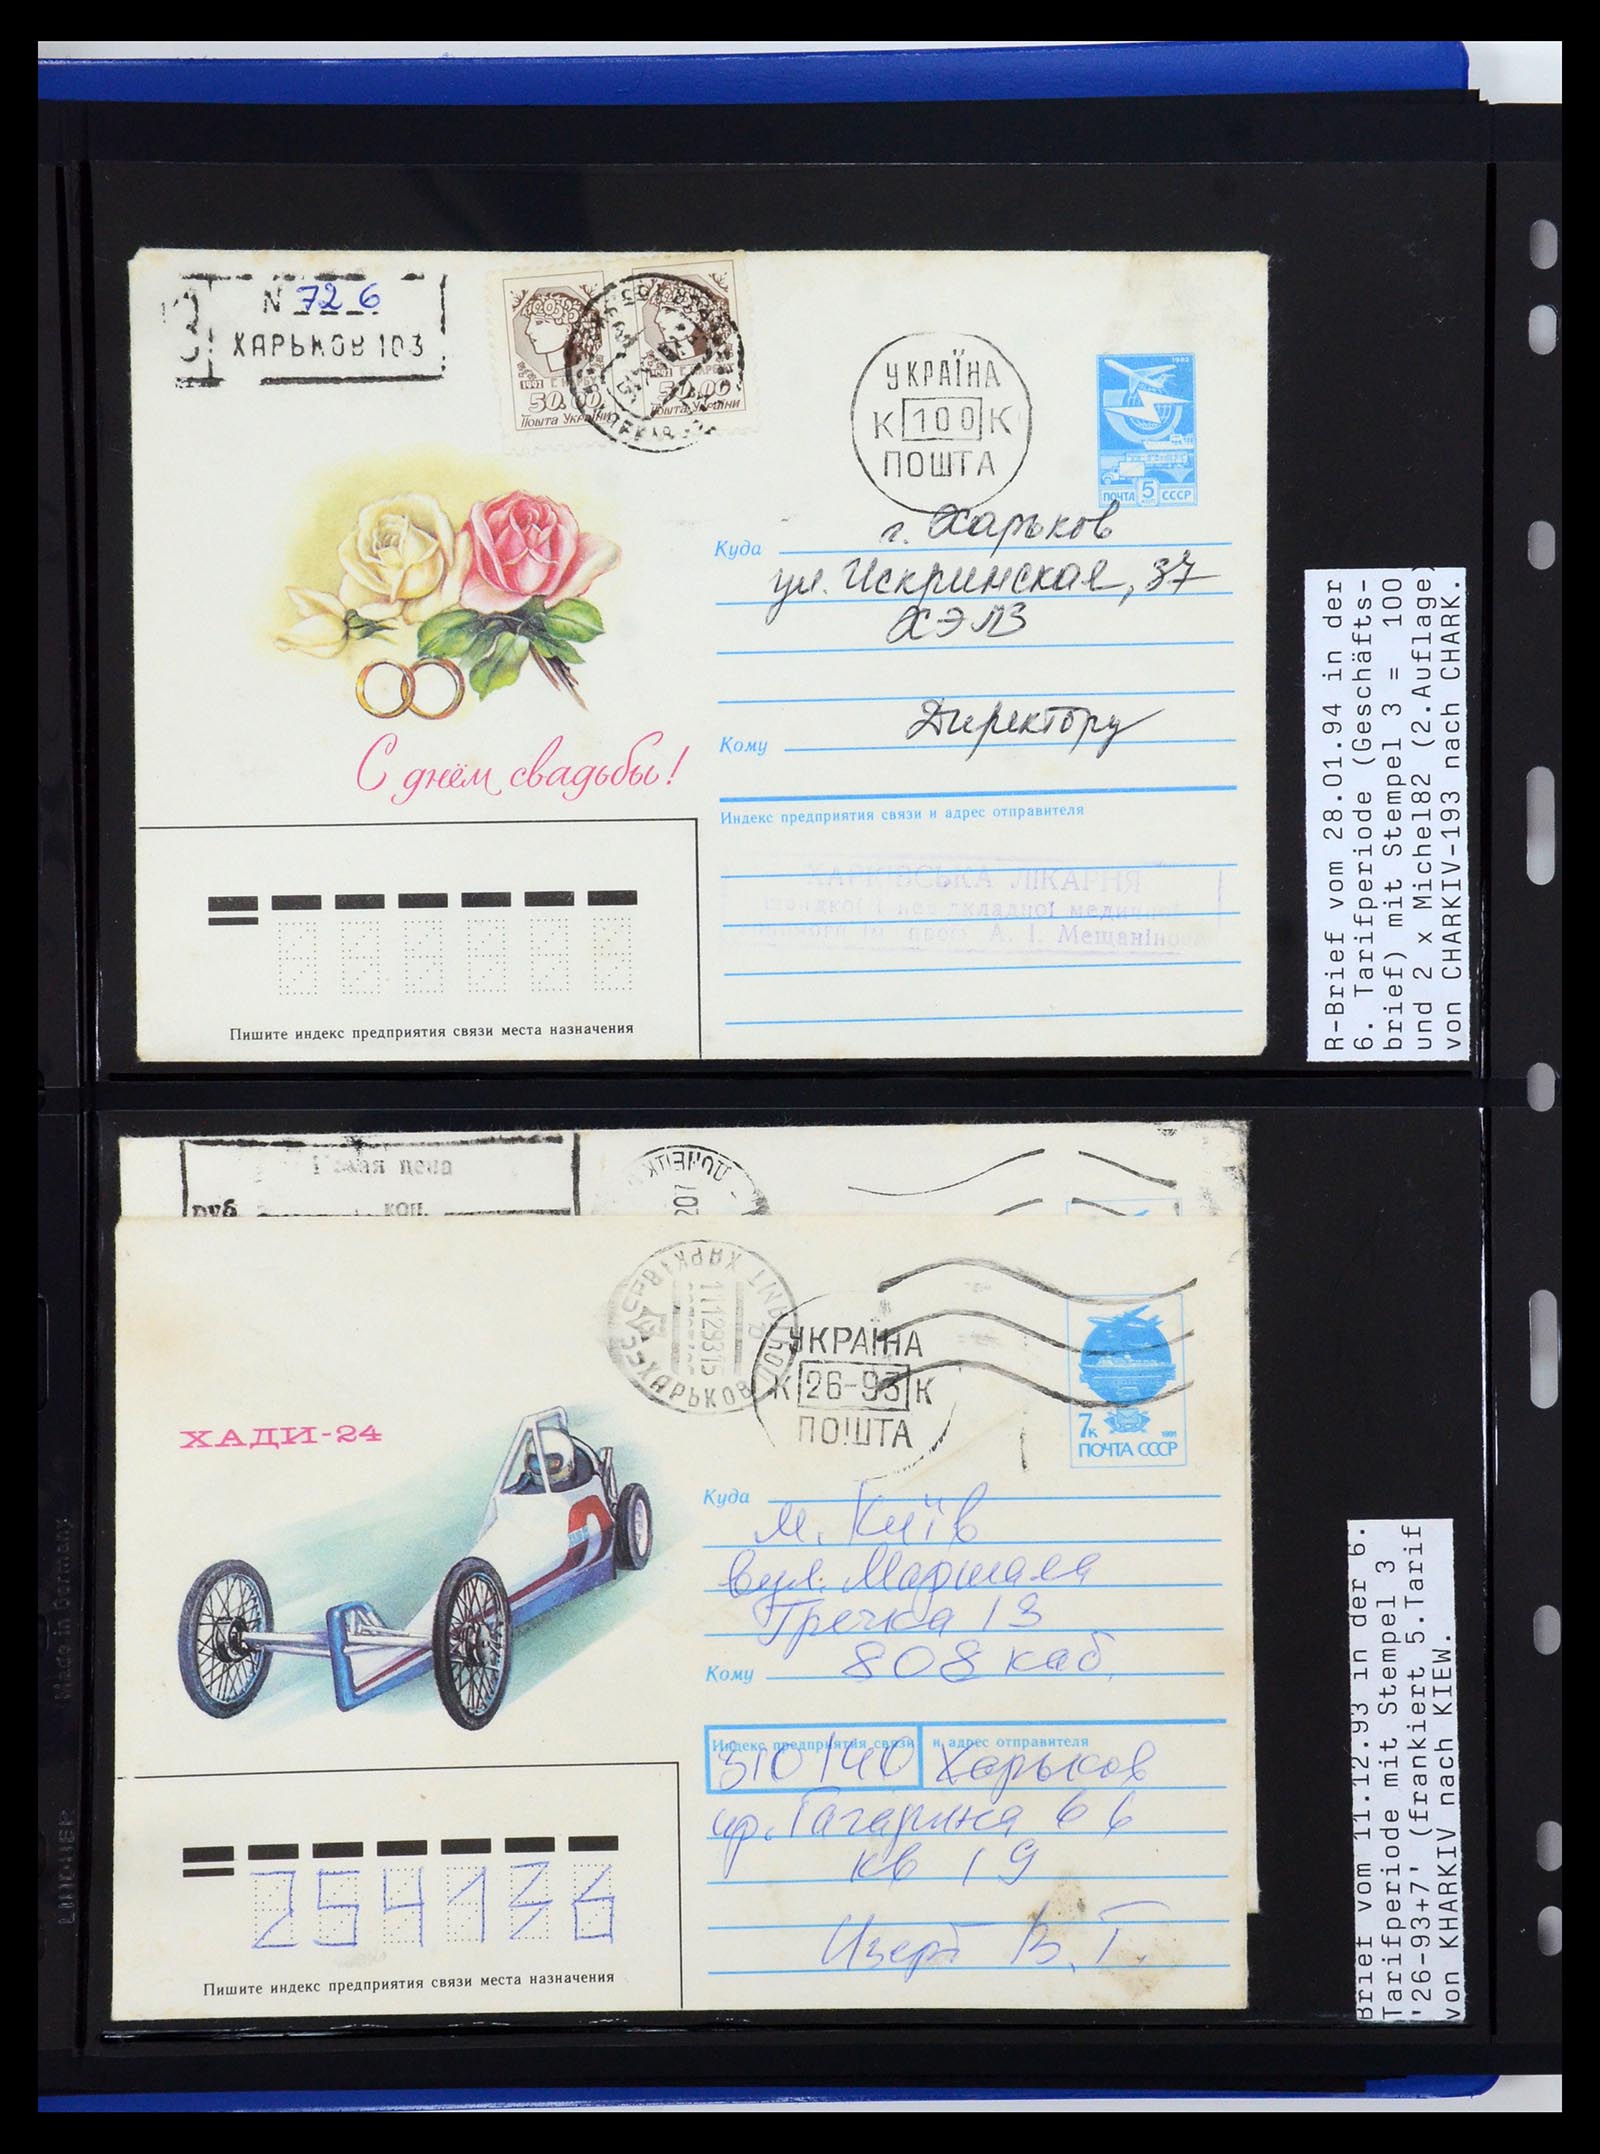 N 726
ХАРЬКОВ 103
1992 Г. НАРБУТ
50.00
Пошта України
50.00
Пошта України
УКРАЇНА
К 100 К
ПОШТА
1982
ПОЧТА 5 СССР
Куда г. Харьков
ул. Искринская, 37
ХЭЛЗ
Кому Директору
С днём свадьбы!
Индекс предприятия связи и адрес отправителя
ХАРКІВСЬКА ЛІКАРНЯ
швидкої і невідкладної медичної
допомоги ім. проф. А. І. Мещанінова
Пишите индекс предприятия связи места назначения
R-Brief vom 28.01.94 in der
6. Tarifperiode (Geschäfts-
brief) mit Stempel 3 = 100
und 2 x Michel82 (2.Auflage)
von CHARKIV-193 nach CHARK.
цена
руб. коп.
ДОНЕЦК
ХАРЬКОВ
111293 15
УКРАЇНА
К 26-93 К
ПОШТА
7к 1991
ПОЧТА СССР
ХАДИ-24
Куда м. Київ
вул. Маршала
Гречка 13
Кому 808 каб.
Индекс предприятия связи и адрес отправителя
310140 Харьков
пр. Гагарина 66
кв 19
В. Г.
254136
Пишите индекс предприятия связи места назначения
Brief vom 11.12.93 in der 6.
Tarifperiode mit Stempel 3
'26-93+7' (frankiert 5.Tarif
von KHARKIV nach KIEW.
Made in Germany
LINDNER